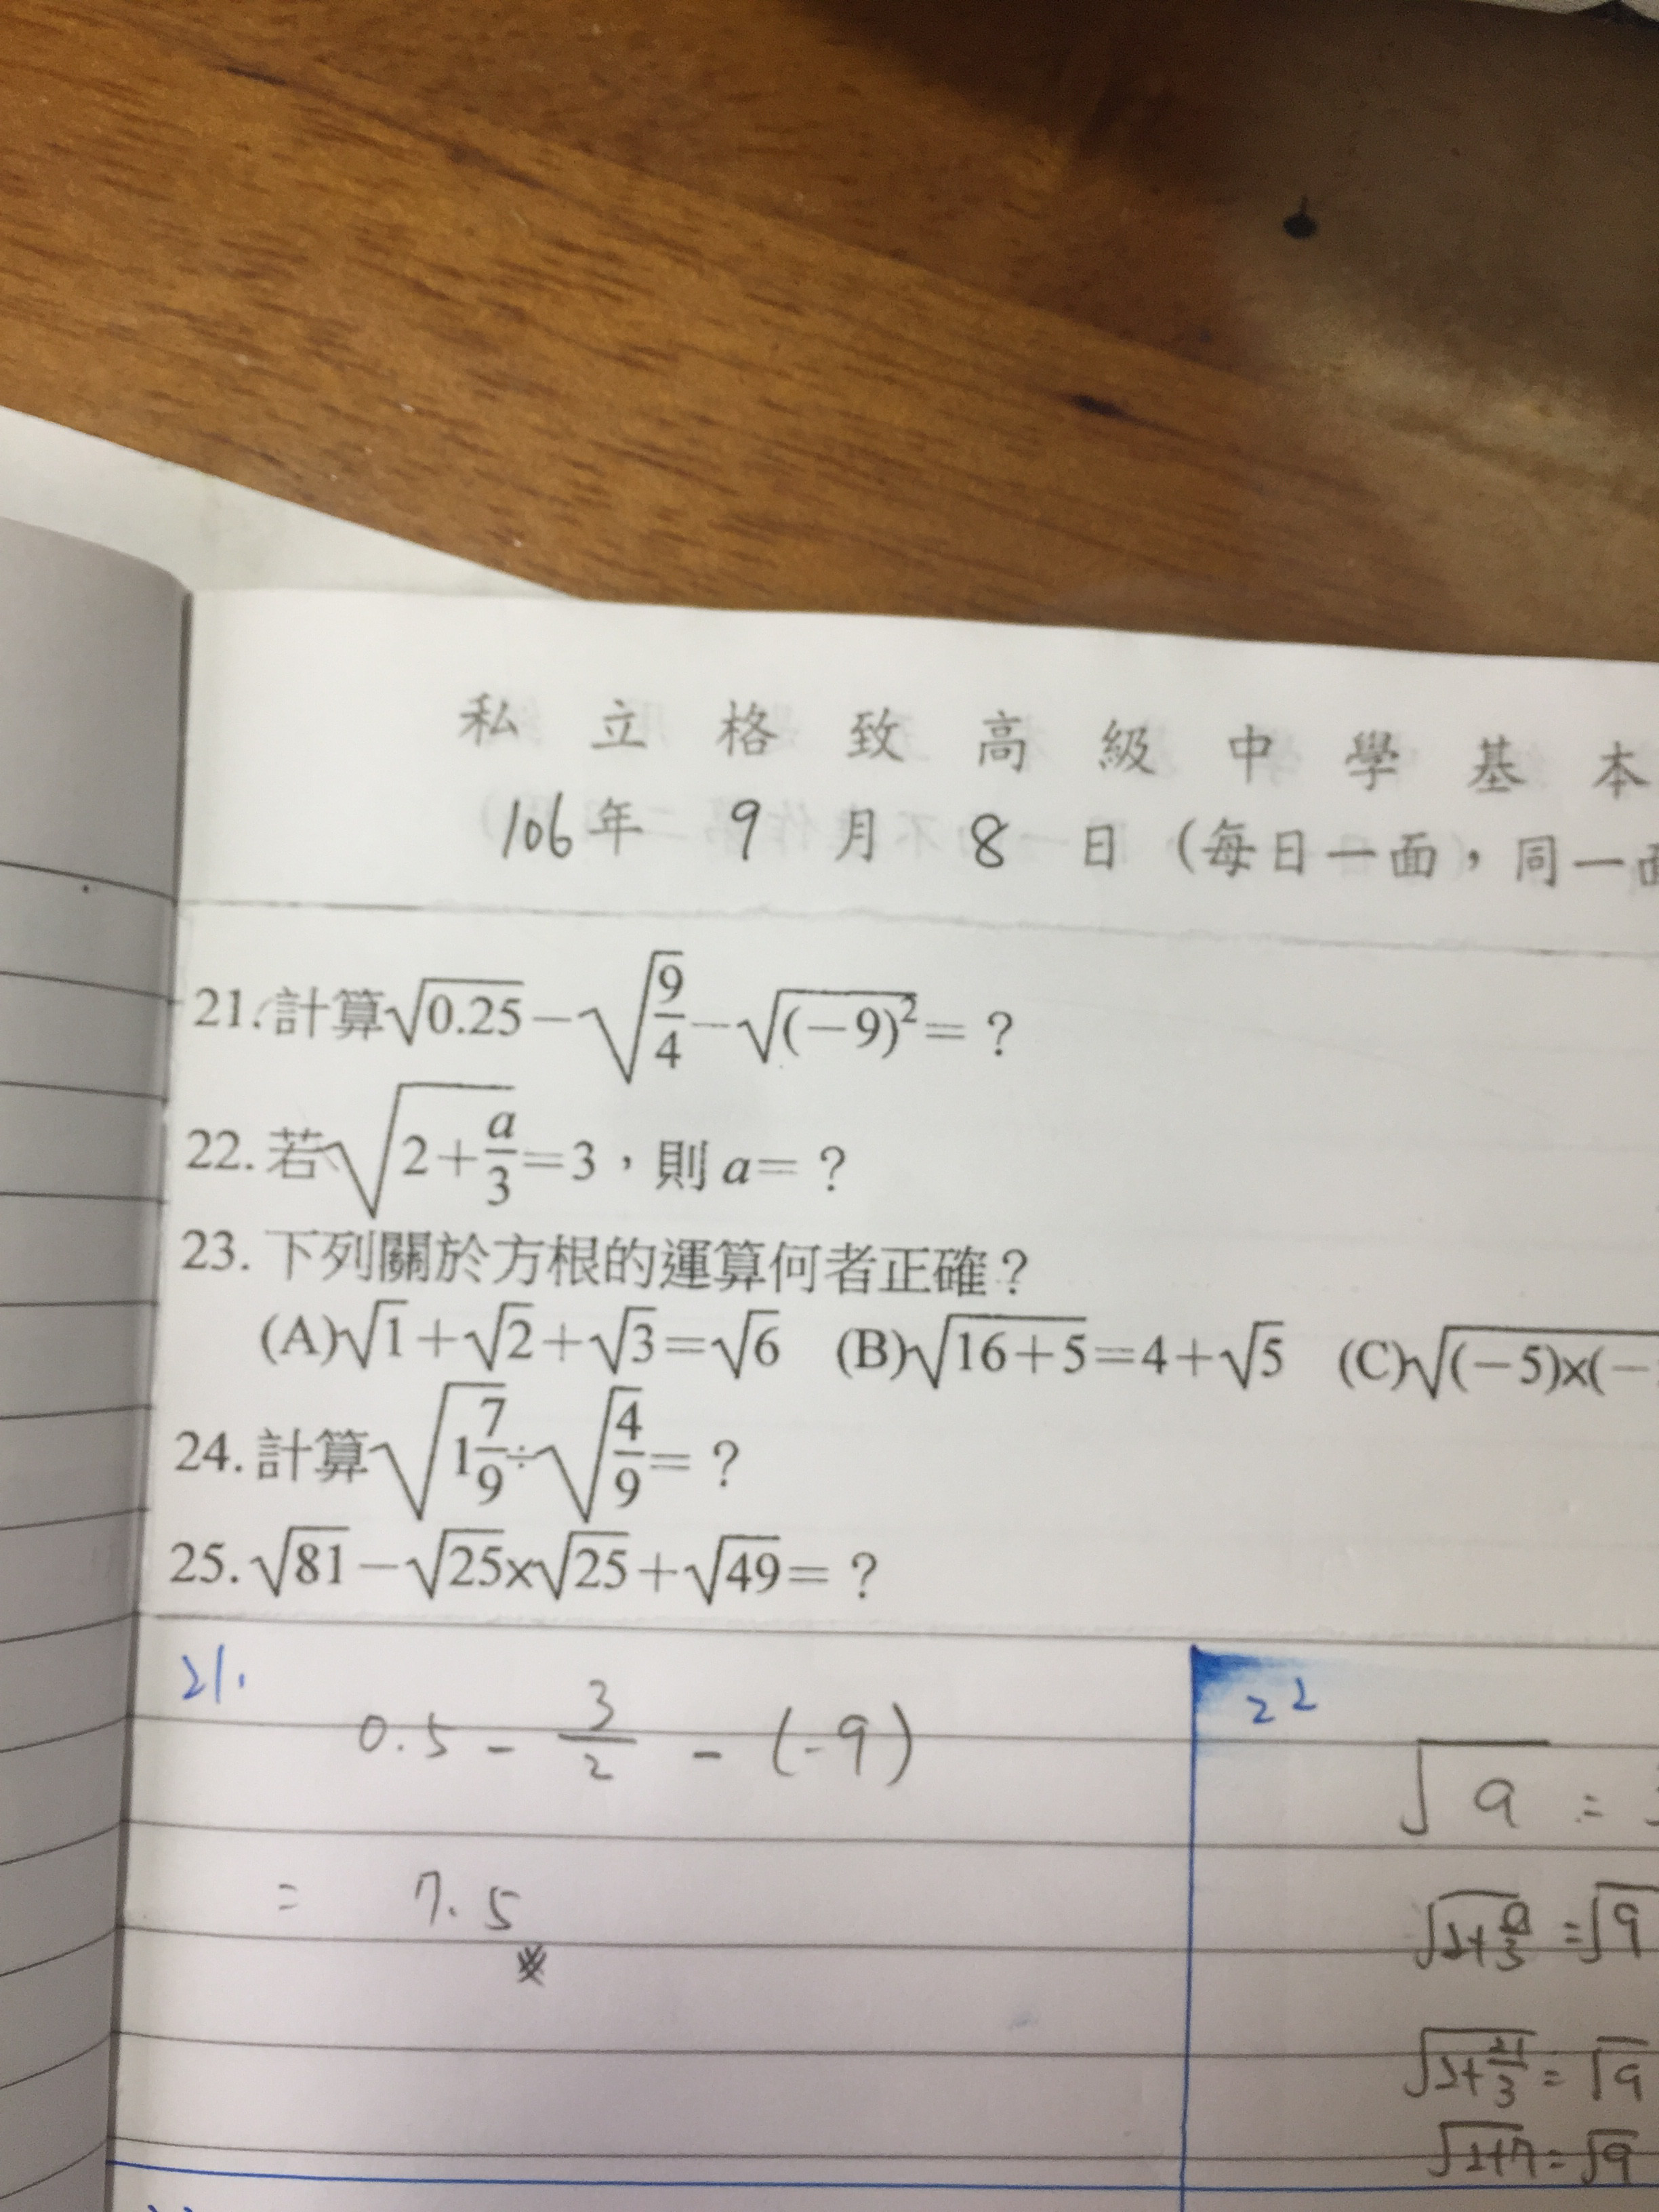 私立格致高級中學基本
106年 9月 8日(每日一面,同一面
21.計算√0.25−√(9/4)−√(−9)²=?
22.若√(2+a/3)=3,則a=?
23.下列關於方根的運算何者正確?
(A)√1+√2+√3=√6 (B)√(16+5)=4+√5 (C)√(−5)×(−
24.計算√(1 7/9)÷√(4/9)=?
25.√81−√25×√25+√49=?
21.
0.5 - 3/2 - (-9)
= 7.5
22
√9 =
√(2+a/3) = √9
√(2+21/3) = √9
√(2+7) = √9